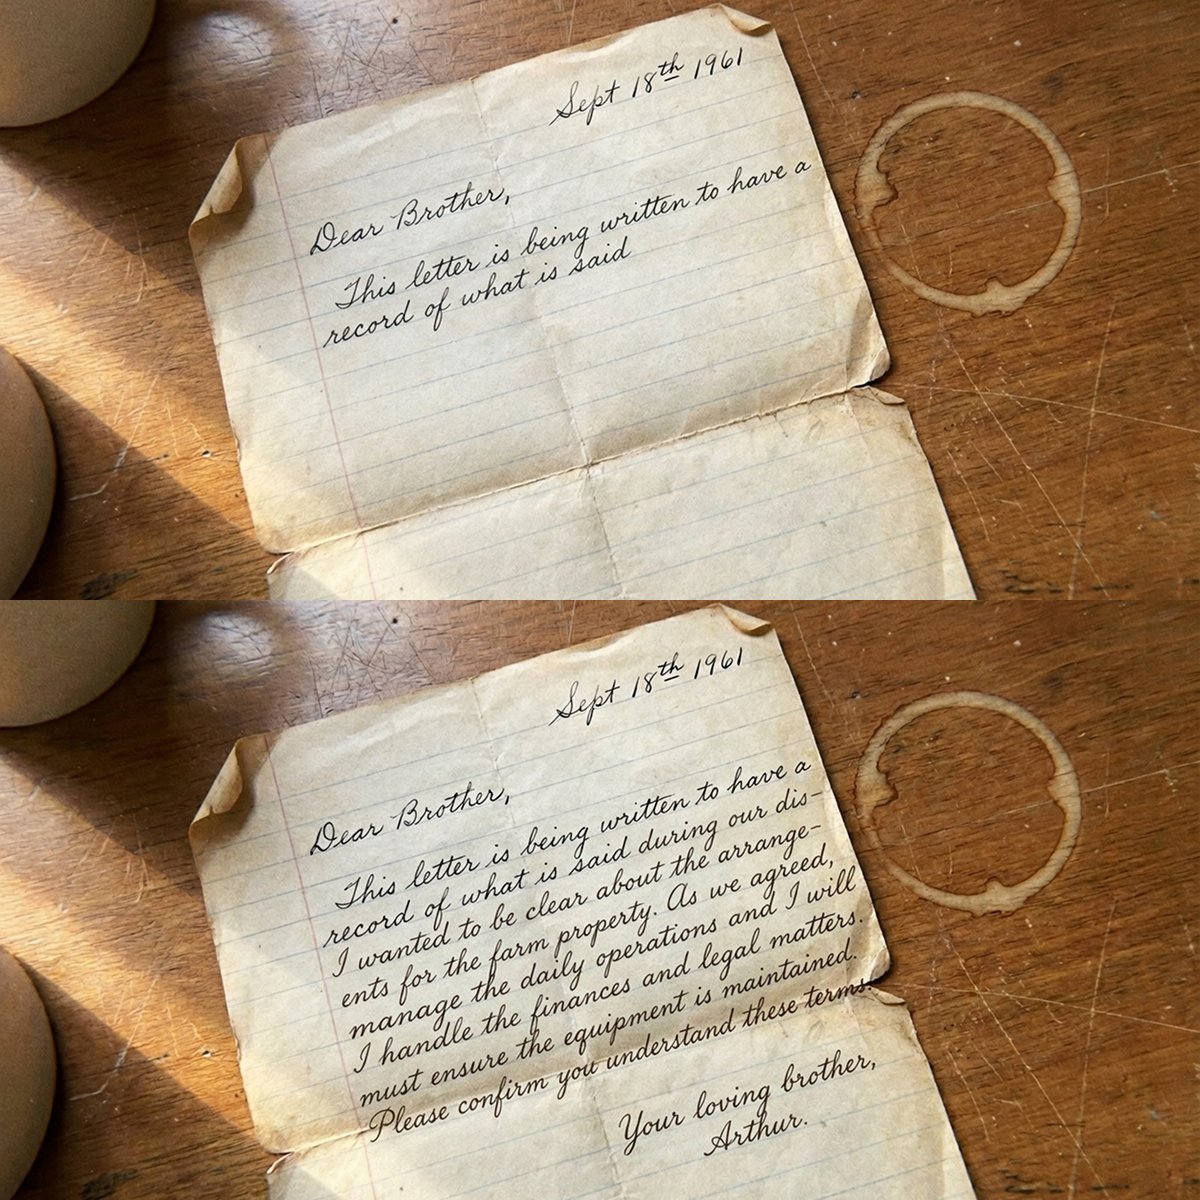 Sept 18th 1961
Dear Brother,
This letter is being written to have a
record of what is said
Sept 18th 1961
Dear Brother,
This letter is being written to have a
record of what is said during our dis-
I wanted to be clear about the arrange-
ents for the farm property. As we agreed,
manage the daily operations and I will
I handle the finances and legal matters.
must ensure the equipment is maintained.
Please confirm you understand these terms.
Your loving brother,
Arthur.